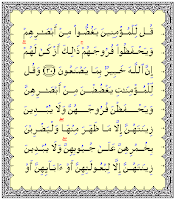 قُل لِّلْمُؤْمِنِينَ يَغُضُّوا۟ مِنْ أَبْصَـٰرِهِمْ
وَيَحْفَظُوا۟ فُرُوجَهُمْ ذَٰلِكَ أَزْكَىٰ لَهُمْ
إِنَّ ٱللَّهَ خَبِيرٌۢ بِمَا يَصْنَعُونَ ﴿٣٠﴾ وَقُل
لِّلْمُؤْمِنَـٰتِ يَغْضُضْنَ مِنْ أَبْصَـٰرِهِنَّ
وَيَحْفَظْنَ فُرُوجَهُنَّ وَلَا يُبْدِينَ
زِينَتَهُنَّ إِلَّا مَا ظَهَرَ مِنْهَا وَلْيَضْرِبْنَ
بِخُمُرِهِنَّ عَلَىٰ جُيُوبِهِنَّ وَلَا يُبْدِينَ
زِينَتَهُنَّ إِلَّا لِبُعُولَتِهِنَّ أَوْ ءَابَآئِهِنَّ أَوْ